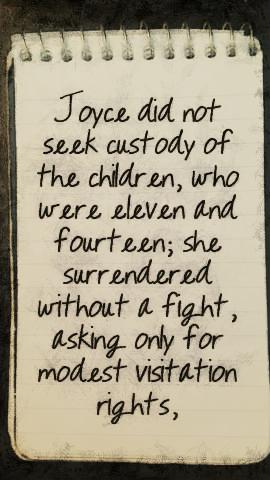 Joyce did not
seek custody of
the children, who
were eleven and
fourteen; she
surrendered
without a fight,
asking only for
modest visitation
rights,